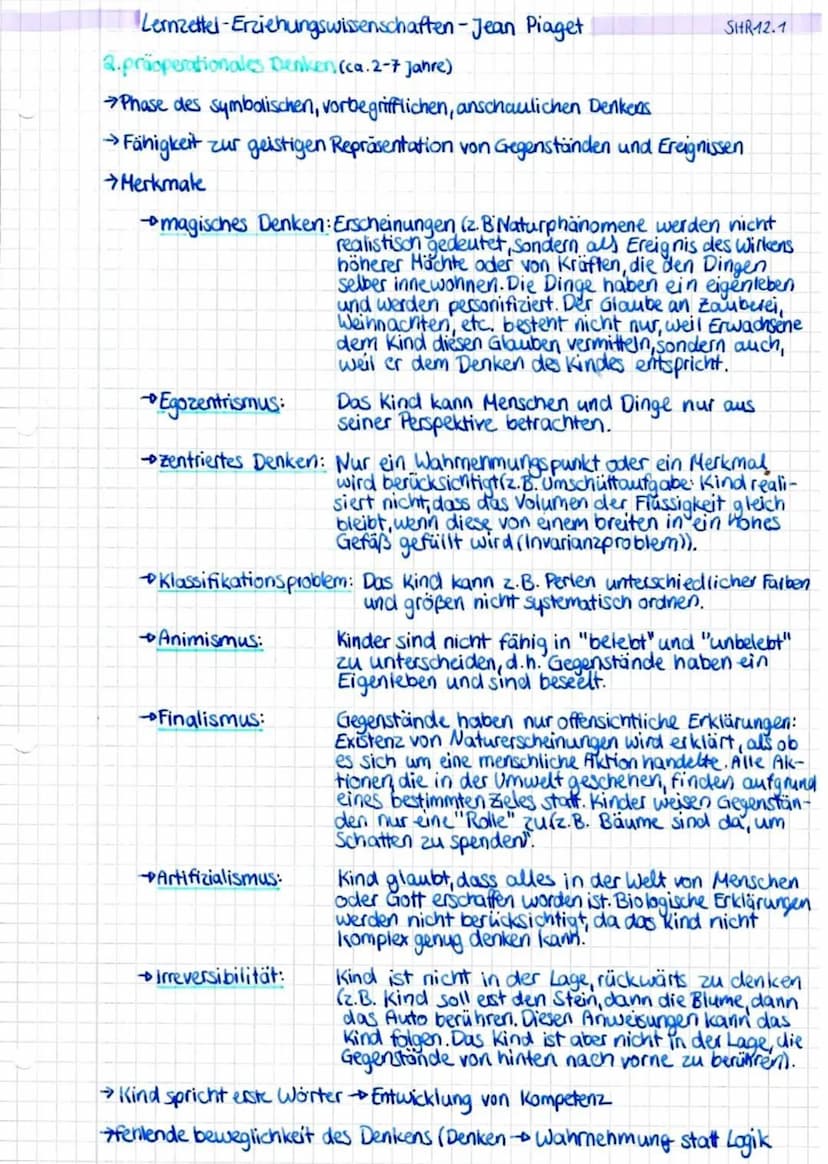 Lernzettel-Erziehungswissenschaften-Jean Piaget SHR12.1
2. präoperationales Denken (ca. 2-7 Jahre)
→Phase des symbolischen, vorbegrifflichen, anschaulichen Denkens
→Fähigkeit zur geistigen Repräsentation von Gegenständen und Ereignissen
→Merkmale
→magisches Denken: Erscheinungen (z.B Naturphänomene werden nicht
realistisch gedeutet, sondern als Ereignis des Wirkens
höherer Mächte oder von Kräften, die den Dingen
selber innewohnen. Die Dinge haben ein eigenleben
und werden personifiziert. Der Glaube an Zauberei,
Weihnachten, etc. besteht nicht nur, weil Erwachsene
dem Kind diesen Glauben vermitteln, sondern auch,
weil er dem Denken des Kindes entspricht.
→Egozentrismus: Das Kind kann Menschen und Dinge nur aus
seiner Perspektive betrachten.
→zentriertes Denken: Nur ein Wahrnehmungspunkt oder ein Merkmal
wird berücksichtigt (z.B. Umschüttaufgabe: Kind reali-
siert nicht, dass das Volumen der Flüssigkeit gleich
bleibt, wenn diese von einem breiten in ein hohes
Gefäß gefüllt wird (Invarianzproblem)).
→Klassifikationsproblem: Das Kind kann z.B. Perlen unterschiedlicher Farben
und größen nicht systematisch ordnen.
→Animismus: Kinder sind nicht fähig in "belebt" und "unbelebt"
zu unterscheiden, d.h. Gegenstände haben ein
Eigenleben und sind beseelt.
→Finalismus: Gegenstände haben nur offensichtliche Erklärungen:
Existenz von Naturerscheinungen wird erklärt, als ob
es sich um eine menschliche Aktion handelte. Alle Ak-
tionen, die in der Umwelt geschehen, finden aufgrund
eines bestimmten Zieles statt. Kinder weisen Gegenstän-
den nur eine "Rolle" zu (z.B. Bäume sind da, um
Schatten zu spenden).
→Artifizialismus: Kind glaubt, dass alles in der Welt von Menschen
oder Gott erschaffen worden ist. Biologische Erklärungen
werden nicht berücksichtigt, da das Kind nicht
komplex genug denken kann.
→Irreversibilität: Kind ist nicht in der Lage, rückwärts zu denken
(z.B. Kind soll erst den Stein, dann die Blume, dann
das Auto berühren. Diesen Anweisungen kann das
Kind folgen. Das Kind ist aber nicht in der Lage, die
Gegenstände von hinten nach vorne zu berühren).
→Kind spricht erste Wörter → Entwicklung von Kompetenz
→fehlende beweglichkeit des Denkens (Denken → Wahrnehmung statt Logik